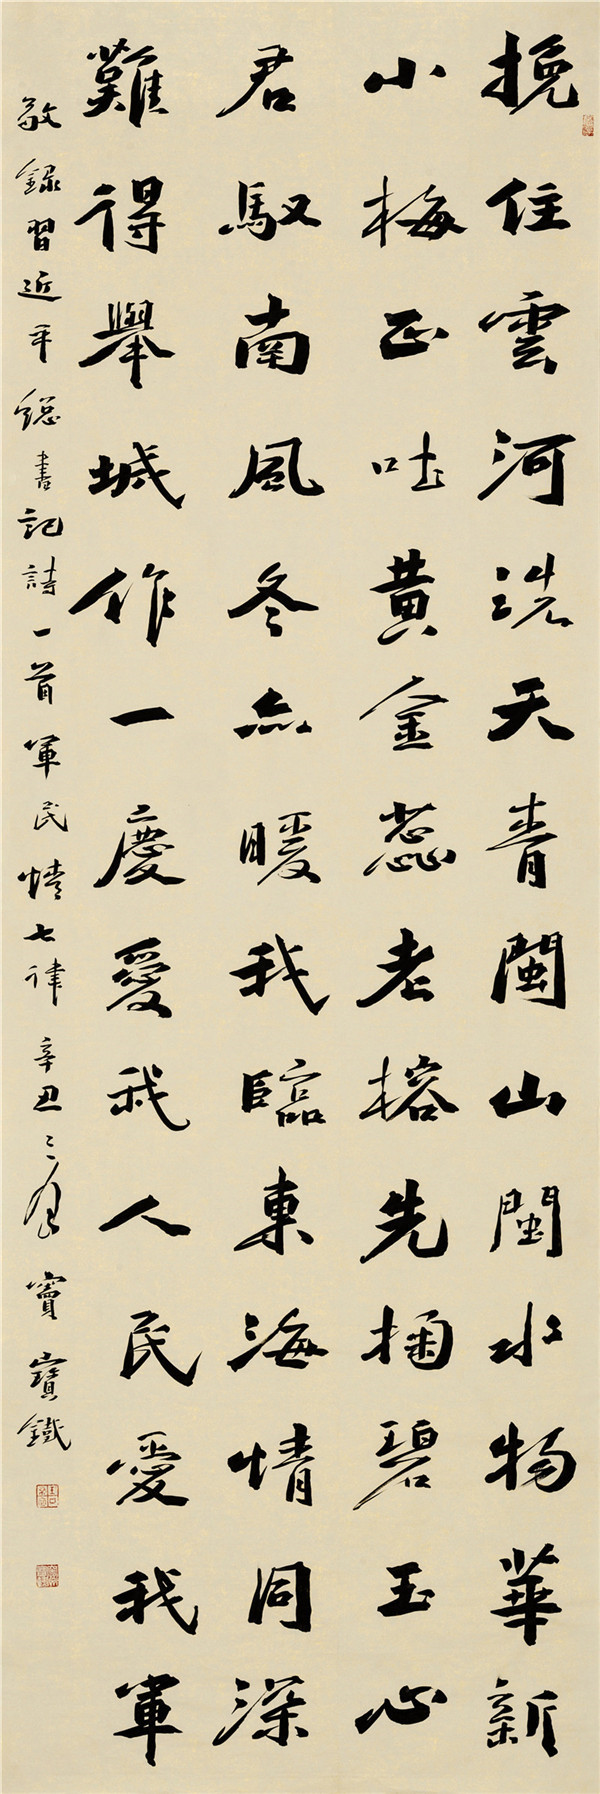 挽住雲河洗天青閩山閩水物華新
小梅正吐黄金蕊老榕先掬碧玉心
君馭南風冬亦暖我臨東海情同深
難得舉城作一慶愛我人民愛我軍
敬録習近平總書記詩一首軍民情七律辛丑之夏竇寶鐵